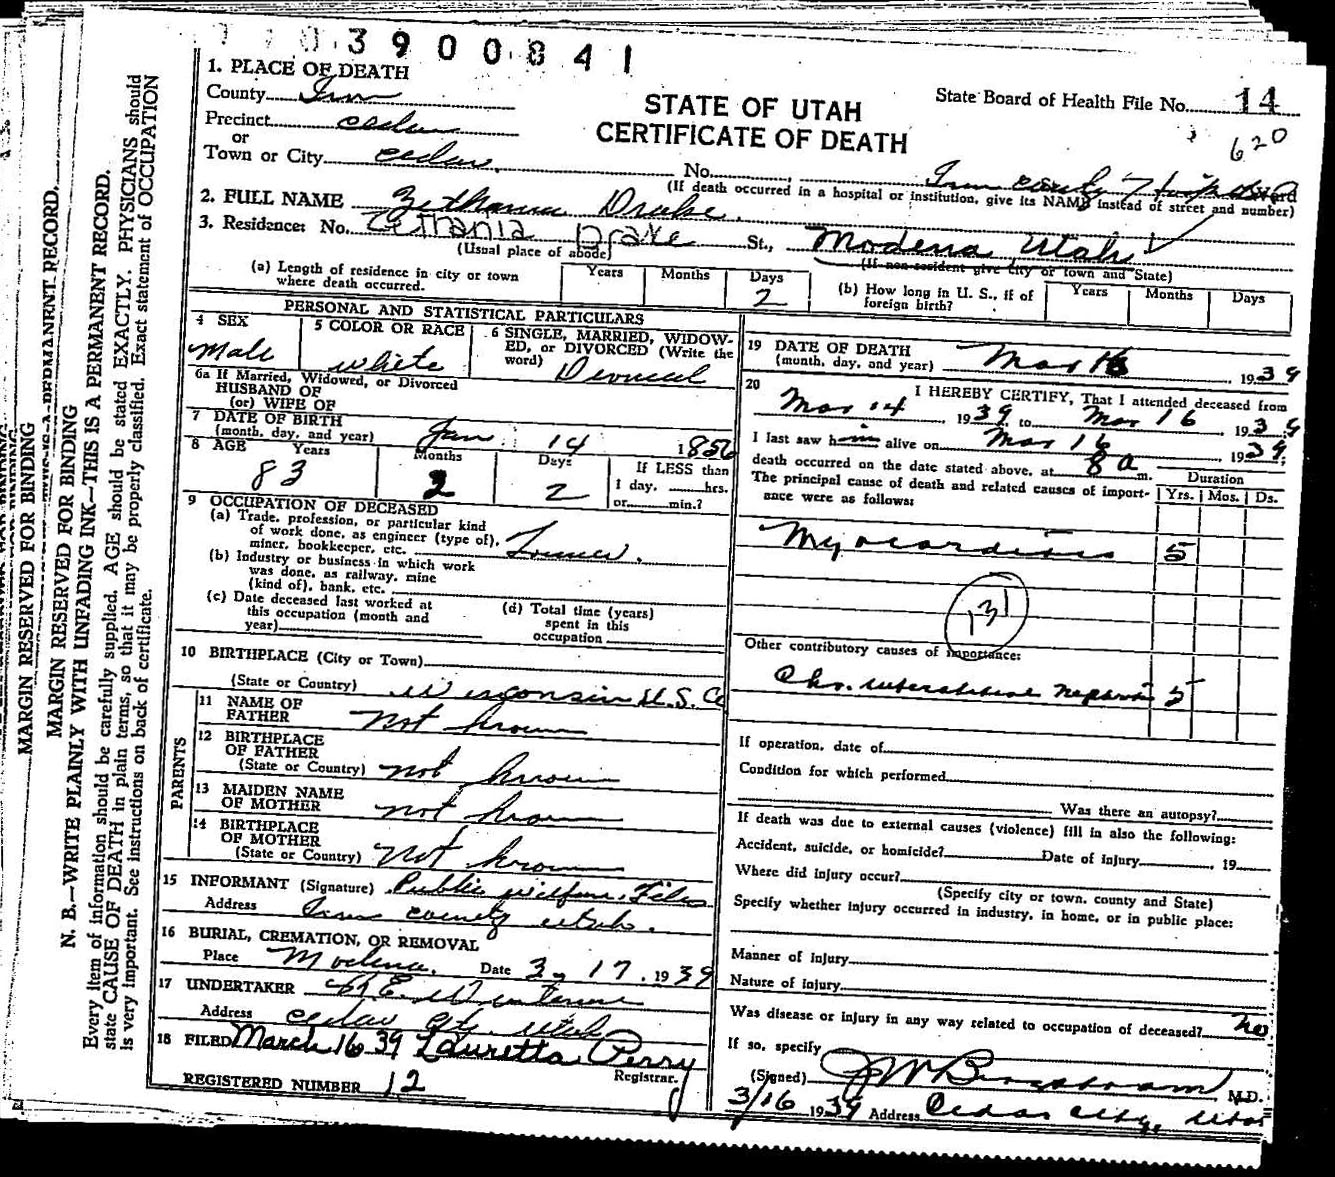 3900841
1. PLACE OF DEATH
County Iron
STATE OF UTAH
CERTIFICATE OF DEATH
State Board of Health File No. 14
620
Precinct Cedar
or
Town or City Cedar. No. Iron County Hospital Ward
(If death occurred in a hospital or institution, give its NAME instead of street and number)
2. FULL NAME Zethania Drake.
3. Residence: No. Zethania Drake St., Modena Utah
(Usual place of abode) (If non-resident give city or town and State)
(a) Length of residence in city or town where death occurred. Years Months Days 2
(b) How long in U. S., if of foreign birth? Years Months Days
PERSONAL AND STATISTICAL PARTICULARS
4 SEX Male
5 COLOR OR RACE white
6 SINGLE, MARRIED, WIDOWED, or DIVORCED (Write the word)
6a If Married, Widowed, or Divorced
HUSBAND OF
(or) WIFE OF
7 DATE OF BIRTH
(month, day, and year) Jan 14 1856
8 AGE Years 83 Months 2 Days 2
If LESS than
1 day, hrs.
or min.?
9 OCCUPATION OF DECEASED
(a) Trade, profession, or particular kind
of work done, as engineer (type of),
miner, bookkeeper, etc.
(b) Industry or business in which work
was done, as railway, mine
(kind of), bank, etc.
(c) Date deceased last worked at
this occupation (month and
year)
(d) Total time (years)
spent in this
occupation
10 BIRTHPLACE (City or Town)
(State or Country) Wisconsin U.S.
PARENTS
11 NAME OF
FATHER Not known
12 BIRTHPLACE
OF FATHER
(State or Country) not known
13 MAIDEN NAME
OF MOTHER not known
14 BIRTHPLACE
OF MOTHER
(State or Country) Not known
15 INFORMANT (Signature) Public Welfare Files
Address Iron County Utah.
16 BURIAL, CREMATION, OR REMOVAL
Place Modena. Date 3, 17. 1939
17 UNDERTAKER
Address Cedar City Utah
18 FILED March 16 39 Lauretta Perry
Registrar.
REGISTERED NUMBER 12
19 DATE OF DEATH
(month, day, and year) Mar 16, 1939
20 I HEREBY CERTIFY, That I attended deceased from
Mar 14 1939 to Mar 16 1939
I last saw him alive on Mar 16 1939
death occurred on the date stated above, at 8 a m.
The principal cause of death and related causes of importance were as follows:
Duration
Yrs. Mos. Ds.
Myocarditis 5
131
Other contributory causes of importance:
Chr. interstitial nephritis 5
If operation, date of
Condition for which performed
Was there an autopsy?
If death was due to external causes (violence) fill in also the following:
Accident, suicide, or homicide? Date of injury , 19
Where did injury occur?
(Specify city or town, county and State)
Specify whether injury occurred in industry, in home, or in public place:
Manner of injury
Nature of injury
Was disease or injury in any way related to occupation of deceased? no
If so, specify
(Signed) J W Bergstrom M.D.
3/16 1939 Address Cedar City, Utah
MARGIN RESERVED FOR BINDING
MARGIN RESERVED FOR BINDING
N. B.—WRITE PLAINLY WITH UNFADING INK—THIS IS A PERMANENT RECORD.
Every item of information should be carefully supplied. AGE should be stated EXACTLY. PHYSICIANS should
state CAUSE OF DEATH in plain terms, so that it may be properly classified. Exact statement of OCCUPATION
is very important. See instructions on back of certificate.